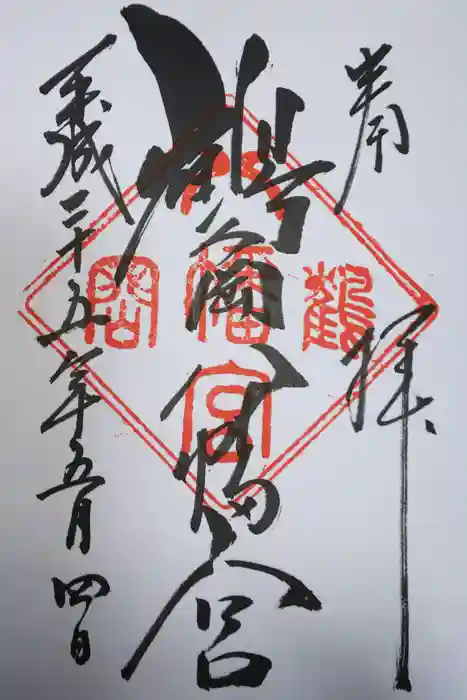 奉拝
鶴岡八幡宮
平成二十五年五月四日
鶴
八幡宮
岡